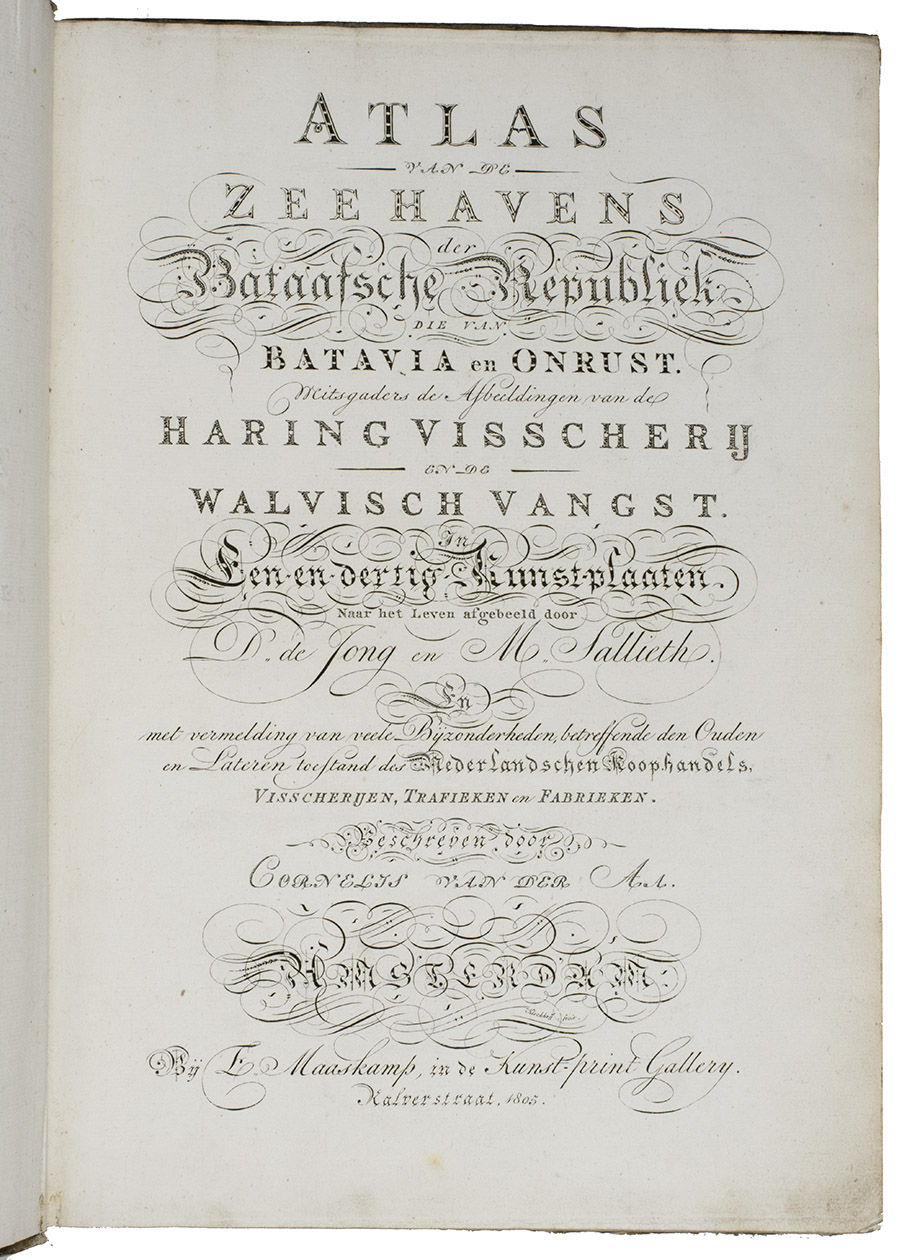 ATLAS
VAN DE
ZEEHAVENS
der
Bataafsche Republiek
DIE VAN
BATAVIA en ONRUST.
Mitsgaders de Afbeeldingen van de
HARING VISSCHERIJ
EN DE
WALVISCH VANGST.
In
Een-en-dertig Kunst-plaaten.
Naar het Leven afgebeeld door
D,, de Jong en M,, Sallieth.
En
met vermelding van veele Bijzonderheden, betreffende den Ouden
en Lateren toestand des Nederlandschen Koophandels,
VISSCHERIJEN, TRAFIEKEN en FABRIEKEN.
Beschreven door
CORNELIS VAN DER AA.
AMSTERDAM:
Bij E. Maaskamp, in de Kunst-print Gallery.
Kalverstraat, 1805.